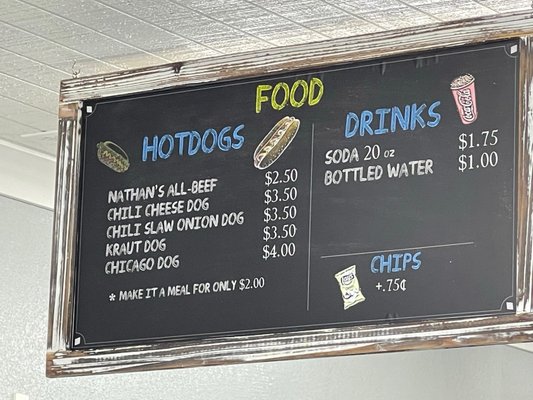 FOOD
HOTDOGS
NATHAN'S ALL-BEEF $2.50
CHILI CHEESE DOG $3.50
CHILI SLAW ONION DOG $3.50
KRAUT DOG $3.50
CHICAGO DOG $4.00
* MAKE IT A MEAL FOR ONLY $2.00
DRINKS
Coca-Cola
SODA 20 OZ $1.75
BOTTLED WATER $1.00
CHIPS
+.75¢